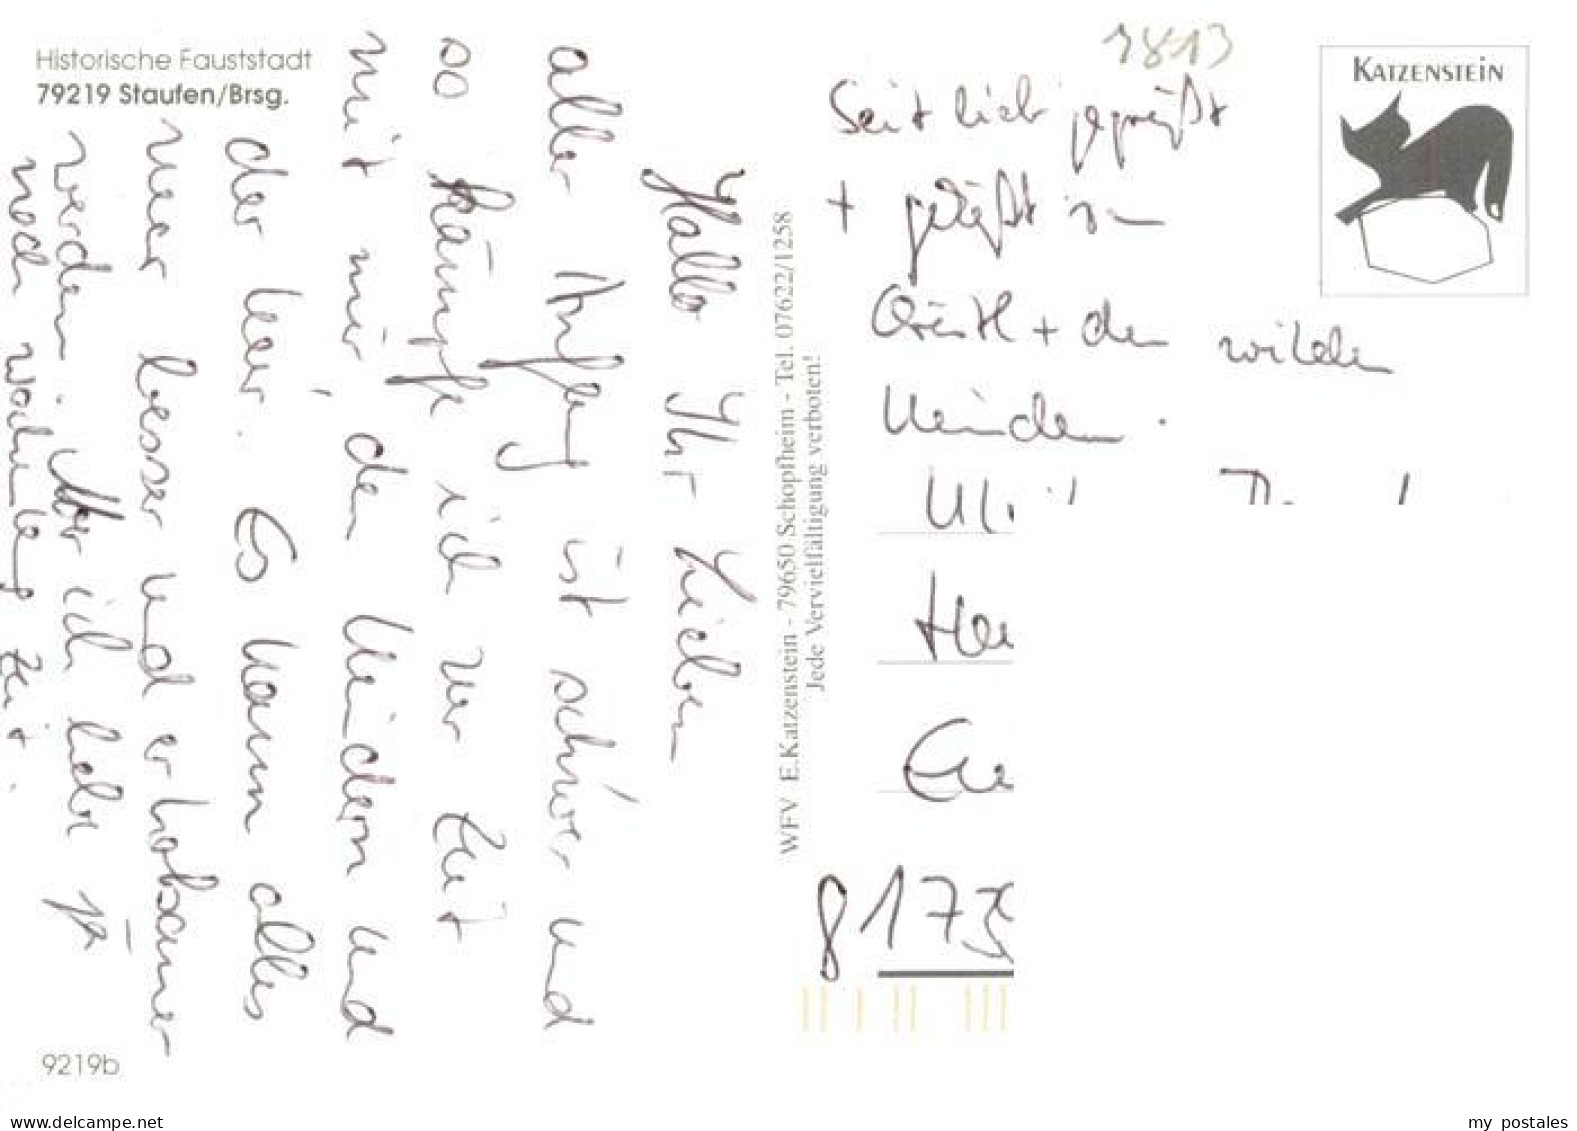 Historische Fauststadt
79219 Staufen/Brsg.
Hallo Ihr Lieben
aller Anfang ist schwer und
so kämpfe ich zur Zeit
mit mir den Kindern und
der Kur. Es kann alles
nur besser und erholsamer
werden. Aber ich habe ja
noch Zeit.
9219b
WFV E.Katzenstein - 79650 Schopfheim - Tel. 07622/1258
Jede Vervielfältigung verboten!
KATZENSTEIN
Seit lieb gegrüßt
+ geküßt von
+ den wilden
Kindern.
8173
www.delcampe.net
my postales